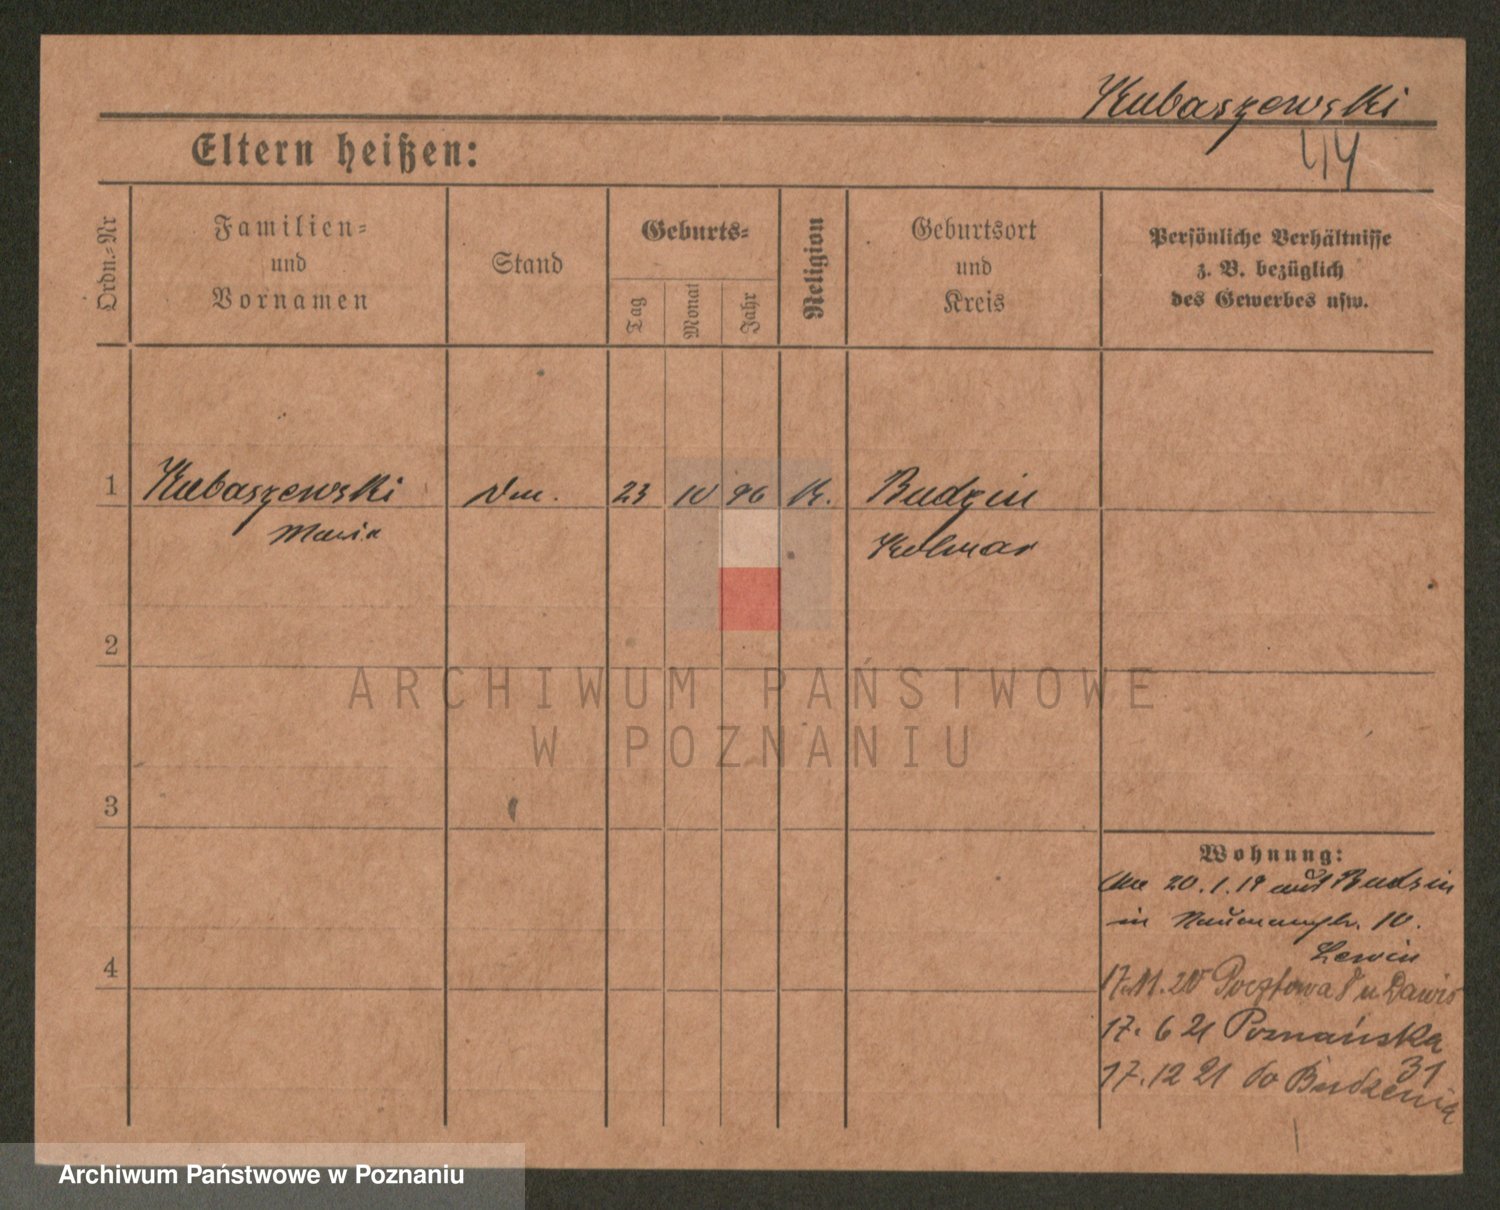 Kubaszewski
44
Eltern heißen:
Ordn.-Nr
Familien-
und
Vornamen
Stand
Geburts-
Tag
Monat
Jahr
Religion
Geburtsort
und
Kreis
Persönliche Verhältnisse
z. B. bezüglich
des Gewerbes usw.
1 Kubaszewski 23 10 96 K. Budzin
Maria Kolmar
2
3
4
Wohnung:
20.1.19 aus Budzin
in Naumannstr. 10.
Lewin
17.11.20 Pocztowa 8 u. Dawis
17. 6 21 Poznańska
31
17.12 21 do Budzenia
ARCHIWUM PAŃSTWOWE
W POZNANIU
Archiwum Państwowe w Poznaniu